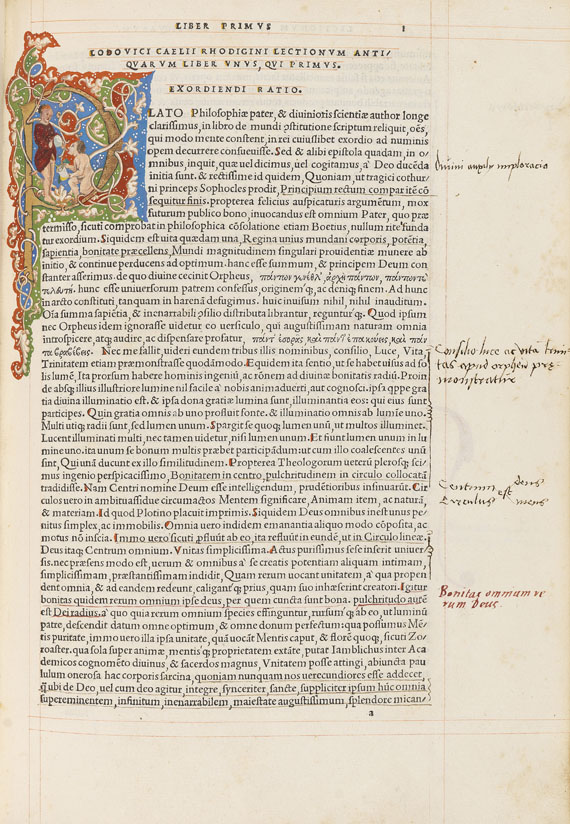 LIBER PRIMVS 1
LODOVICI CAELII RHODIGINI LECTIONVM ANTI/
QVARVM LIBER VNVS, QVI PRIMVS.
EXORDIENDI RATIO.
PLATO Philosophiæ pater, & diuinioris scientiæ author longe
clarissimus, in libro de mundi cōstitutione scriptum reliquit, oēs,
qui modo mente constent, in rei cuiuslibet exordio ad numinis
opem decurrere consueuisse. Sed & alibi epistola quadam, in o/
mnibus, inquit, quæ uel dicimus, uel cogitamus, a' Deo ducēda
initia sunt. & rectissime id quidem, Quoniam, ut tragici cothur/
ni princeps Sophocles prodit, Principium rectum compar itē cō
sequitur finis. propterea felicius auspicaturis argumētum, mox
futurum publico bono, inuocandus est omnium Pater, quo præ
termisso, sicuti comprobat in philosophica cōsolatione etiam Boetius, nullum rite funda
tur exordium. Siquidem est uita quædam una, Regina unius mundani corporis, potētia,
sapientia, bonitate præcellens, Mundi magnitudinem singulari prouidentiæ munere ab
initio, & continue perducens ad optimum. hanc esse summum, & principem Deum con
stanter asserimus. de quo diuine cecinit Orpheus,
hunc esse uniuersorum patrem confessus, originem'q; ac deniq; finem. Ad hunc
in arcto constituti, tanquam in harenā defugimus. huic inuisum nihil, nihil inauditum.
Oīa summa sapiētia, & inenarrabili cōsilio distributa lībrantur, regunturq́;. Quod ipsum
nec Orpheus idem ignorasse uidetur eo uersiculo, qui augustissimam naturam omnia
introspicere, atq; audire, ac dispensare profatur,
Nec me fallit, uideri eundem tribus illis nominibus, consilio, Luce, Vita,
Trinitatem etiam præmonstrasse quodāmodo. Equidem ita sentio, ut se habet uisus ad so
lis lumē, Ita prorsum habere hominis ingeniū, ac rōnem ad diuinæ bonitatis radiū. Proin
de absq; illius illustriore lumine nil facile a' nobis animaduerti, aut cognosci. ipsa qppe gra
tia diuina illuminatio est. & ipsa dona gratiæ lumina sunt, illuminantia eos: qui eius sunt
participes. Quin gratia omnis ab uno profluit fonte. & illuminatio omnis ab lumīe uno.
Multi utiq; radii sunt, sed lumen unum. Spargit se quoq; lumen unū, ut multos illuminet.
Lucent illuminati multi, nec tamen uidetur, nisi lumen unum. Et fiunt lumen unum in lu
mine uno. ita unum se bonum multis præbet participādum: ut cum illo coalescentes unū
sint, Qui unā ducunt ex illo similitudinem. Propterea Theologorum ueterū plerosq́; sci/
mus ingenio perspicacissimo, Bonitatem in centro, pulchritudinem in circulo collocatā
tradidisse. Nam Centri nomine Deum esse intelligendum, prudētioribus insinuarūt. Cir
culos uero in ambitu assidue circumactos Mentem significare, Animam item, ac naturā,
& materiam. Id quod Plotino placuit imprimis. Siquidem Deus omnibus inest unus pe/
nitus simplex, ac immobilis. Omnia uero inidem emanantia aliquo modo cōposita, ac
motus nō inscia. Immo uero sicuti p̄fluūt ab eo, ita refluūt in eundē, ut in Circulo lineæ.
Deus itaq; Centrum omnium. Vnitas simplicissima. Actus purissimus sese inserit uniuer/
sis. nec præsens modo est, uerum & omnibus a' se creatis potentiam aliquam intimam,
simplicissimam, præstantissimam indidit, Quam rerum uocant unitatem, a' qua propen
dent omnia, & ad eandem redeunt, caligantq́; prius, quam suo inhæserint creatori. Igitur
bonitas quidem rerum omnium ipse deus, per quem cūncta sunt bona. pulchritudo autē
est Dei radius. a' quo quia rerum omnium species effinguntur, rursum'q; ab eo, ut luminū
patre, descendit datum omne optimum, & omne donum perfectum: qua possumus Mē/
tis puritate, immo uero illa ipsa unitate, quā uocāt Mentis caput, & florē quoq;, sicuti Zo/
roaster. qua sola super animæ, mentis'q; proprietatem extāte, putat Iamblichus inter Aca
demicos cognomēto diuinus, & sacerdos magnus, Vnitatem posse attingi, abiuncta pau
lulum onerosa hac corporis sarcina, quoniam nunquam nos uerecundiores esse addecet,
q̄ ubi de Deo, uel cum deo agitur, integre, synceriter, sancte, suppliciter ipsum hūc omnia
supereminentem, infinitum, inenarrabilem, maiestate augustissimum, splendore mican/
a
Diuini auxilij imploracio
Consilio luce ac vita trini
tas apud orpheū pre
monstratur
Centrum est deus
Circulus mens
Bonitas omnium re
rum Deus